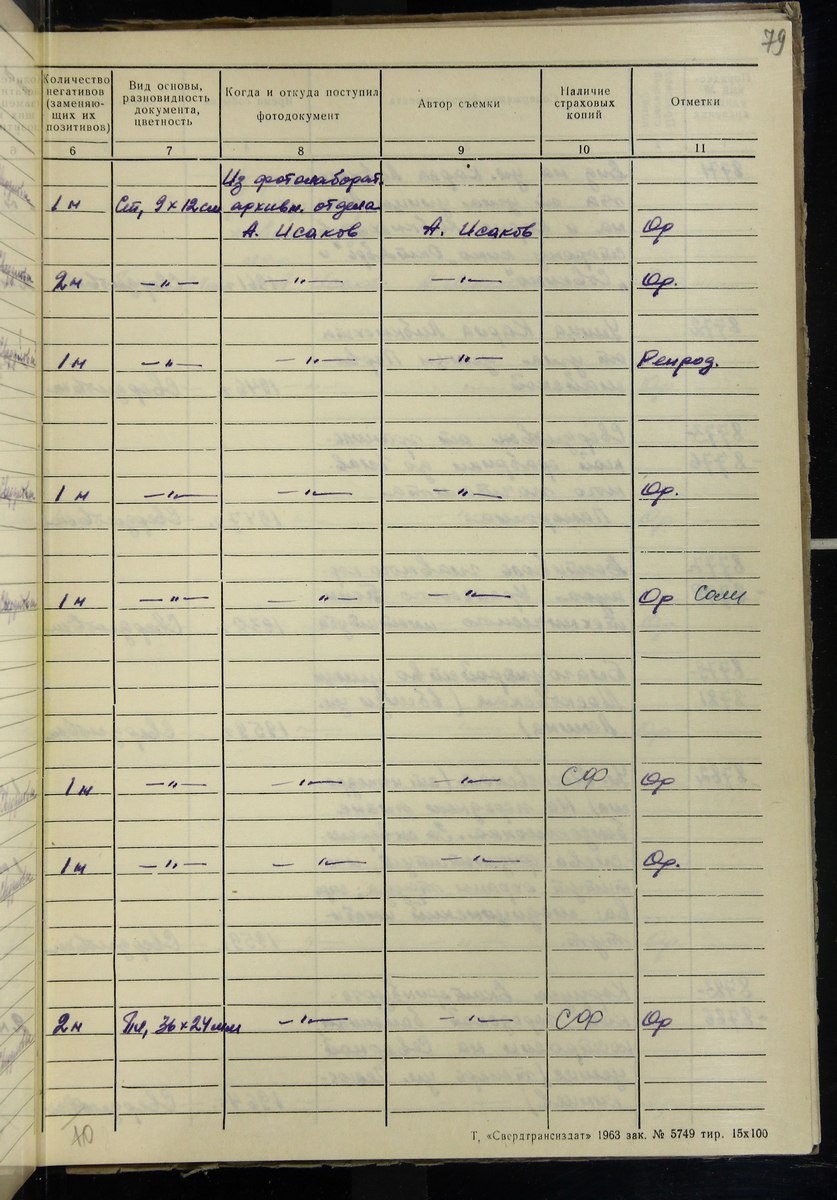 79
Количество негативов (заменяю- щих их позитивов) Вид основы, разновидность документа, цветность Когда и откуда поступил фотодокумент Автор съемки Наличие страховых копий Отметки
6 7 8 9 10 11
Из фотолаборат.
1 н Ст, 9×12 см архивн. отдела
А. Исаков А. Исаков Ор
2 н —"— —"— —"— Ор.
1 н —"— —"— —"— Репрод.
1 н —"— —"— —"— Ор.
1 н —"— —"— —"— Ор
1 н —"— —"— —"— СФ Ор
1 н —"— —"— —"— Ор.
2 н Пл, 36×24 мм —"— —"— СФ Ор
10
Т. «Свердтрансиздат» 1963 зак. № 5749 тир. 15х100